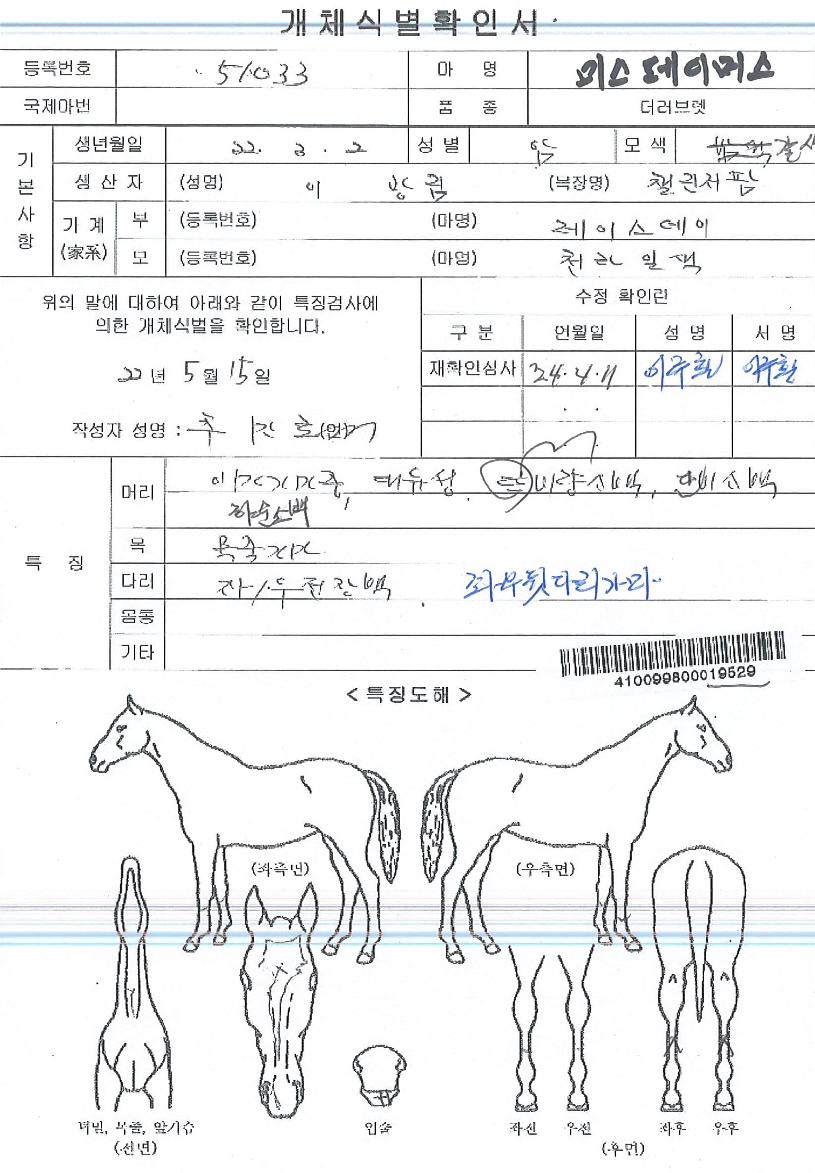 개체식별확인서
등록번호 51033 마 명 미스데이머스
국제마번 품 종 더러브렛
기본사항
생년월일 22. 3. 2 성 별 암 모 색 갈색
생 산 자 (성명) 이 (목장명)
기 계 (家系) 부 (등록번호) (마명) 레이스데이
모 (등록번호) (마명)
위의 말에 대하여 아래와 같이 특징검사에
의한 개체식별을 확인합니다.
22 년 5 월 15 일
작성자 성명 : 추
수정 확인란
구 분 연월일 성 명 서 명
재확인심사 24. 4. 11 이주환 이주환
특 징
머리 대유성, 비량소백, 하순소백
목
다리 좌우뒷다리가마
몸통
기타
410099800019529
< 특징도해 >
(좌측면) (우측면)
턱밑, 목줄, 앞가슴 (전면)
입술
좌전 우전 좌후 우후
(후면)